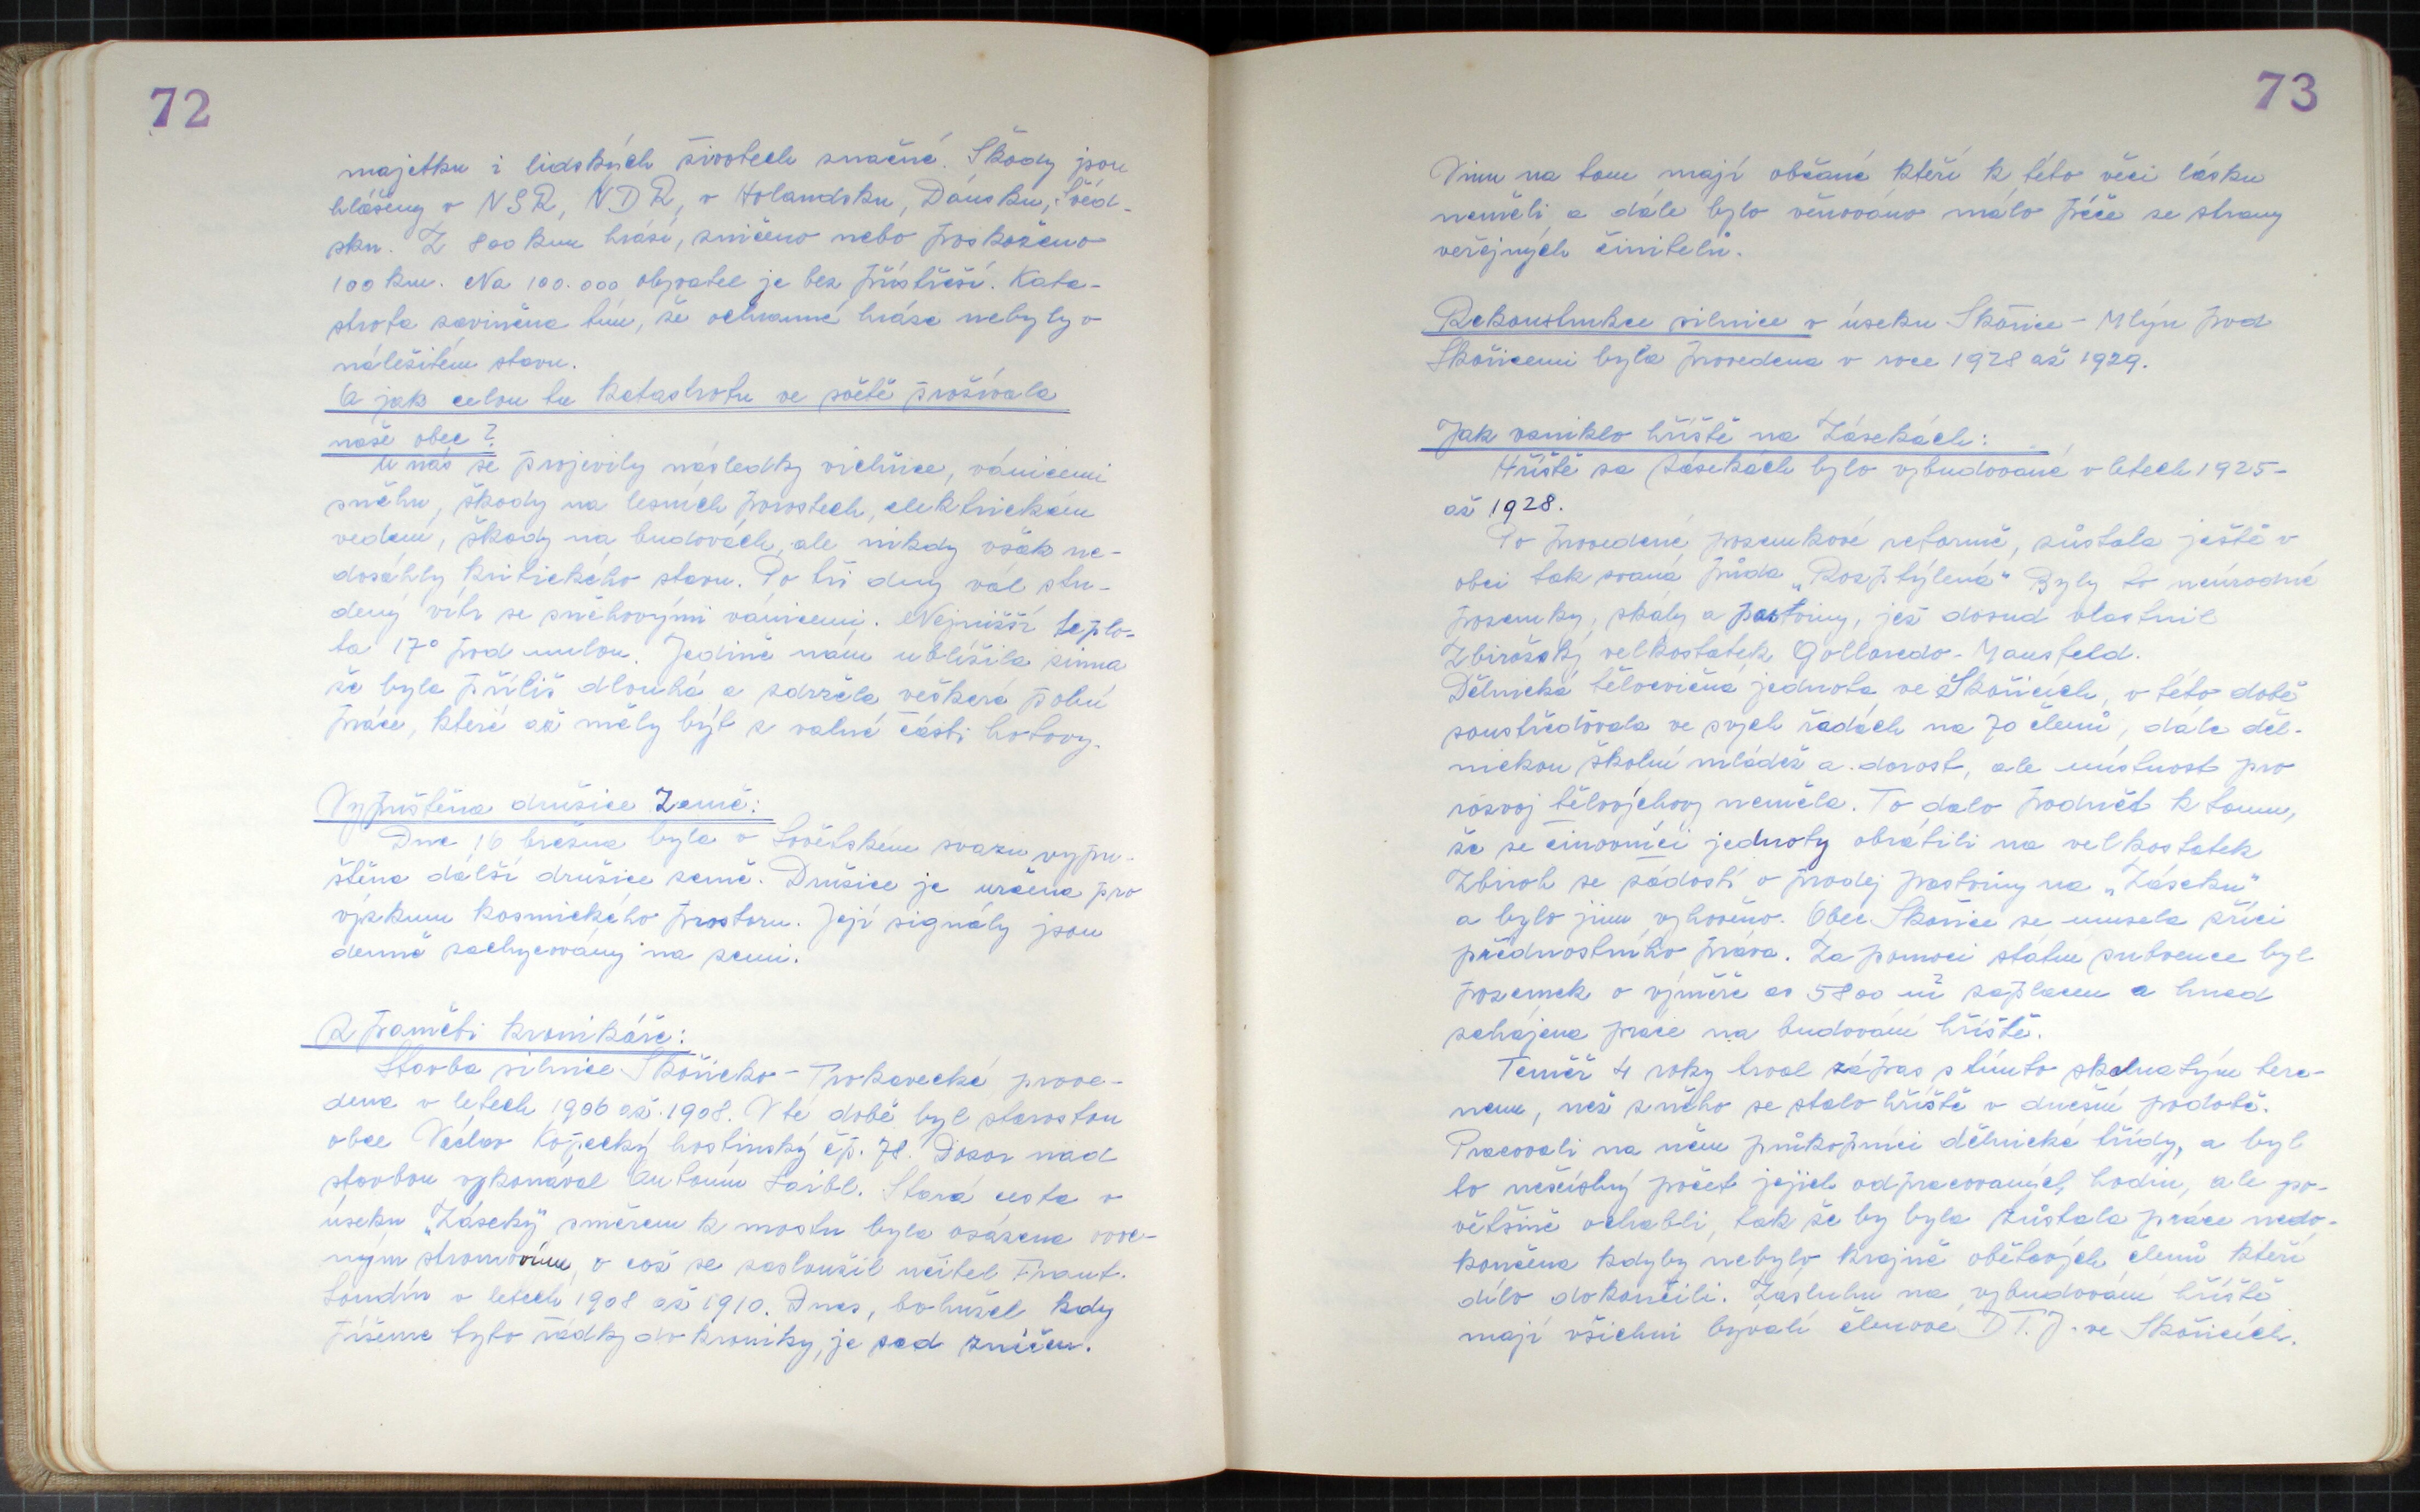 72
majetku i lidských životech značné. Škody jsou
hlášeny v NSR, NDR, v Holandsku, Dánsku, Švéd-
sku. Z 800 km hrází, zničeno nebo poškozeno
100 km. Na 100.000 obyvatel je bez přístřeší. Kata-
strofa zaviněna tím, že ochranné hráze nebyly v
náležitém stavu.
A jak celou tu katastrofu ve světě prožívala
naše obec?
U nás se projevily následky vichřice, vánicemi
sněhu, škody na lesních porostech, elektrickém
vedení, škody na budovách, ale nikdy však ne-
dosáhly kritického stavu. Po tři dny vál stu-
dený vítr se sněhovými vánicemi. Nejnižší teplo-
ta 17° pod nulou. Jedině nám ublížila zima
že byla příliš dlouhá a zdržela veškeré polní
práce, které až měly být z valné části hotovy.
Vypuštěna družice Země:
Dne 16 března byla v Sovětském svazu vypu-
štěna další družice země. Družice je určena pro
výzkum kosmického prostoru. Její signály jsou
denně zachycovány na zemi.
Z paměti kronikáře:
Stavba silnice Skořicko-Trokavecké, prove-
dena v letech 1906 až 1908. V té době byl starostou
obce Václav Kopecký hostinský čp. 78. Dozor nad
stavbou vykonával Antonín Laibl. Stará cesta v
úseku „Záseky" směrem k mostu byla osázena ovoc-
ným stromovím, o což se zasloužil učitel Frant.
Loudín v letech 1908 až 1910. Dnes, bohužel kdy
píšeme tyto řádky do kroniky, je sad zničen.
73
Vinu na tom mají občané kteří k této věci lásku
neměli a dále bylo věnováno málo péče se strany
veřejných činitelů.
Rekonstrukce silnice v úseku Skořice - Mlýn pod
Skořicemi byla provedena v roce 1928 až 1929.
Jak vzniklo hřiště na Zásekách:
Hřiště za Zásekách bylo vybudované v letech 1925-
až 1928.
Po provedené pozemkové reformě, zůstala ještě v
obci tak zvaná půda „Rozptýlená" Byly to neúrodné
pozemky, skály a pastviny, jež dosud vlastnil
Zbirožský velkostatek Golloredo-Mansfeld.
Dělnická tělocvičná jednota ve Skořicích, v této době
soustřeďovala ve svých řadách na 70 členů, dále děl-
nickou školní mládež a dorost, ale místnost pro
rozvoj tělovýchovy neměla. To dalo podnět k tomu,
že se činovníci jednoty obrátili na velkostatek
Zbiroh se žádostí o prodej pastviny na „Záseku"
a bylo jim vyhověno. Obec Skořice se musela zříci
přednostního práva. Za pomoci státní subvence byl
pozemek o výměře as 5800 m² zaplacen a hned
zahájena práce na budování hřiště.
Téměř 4 roky trval zápas s tímto skalnatým tere-
nem, než z něho se stalo hřiště v dnešní podobě.
Pracovali na něm průkopníci dělnické třídy, a byl
to nesčíslný počet jejich odpracovaných hodin, ale po-
většině ochabli, tak že by byla zůstala práce nedo-
končena kdyby nebylo krajně obětavých členů kteří
dílo dokončili. Zásluhu na vybudování hřiště
mají všichni bývalí členové D T. J. ve Skořicích.